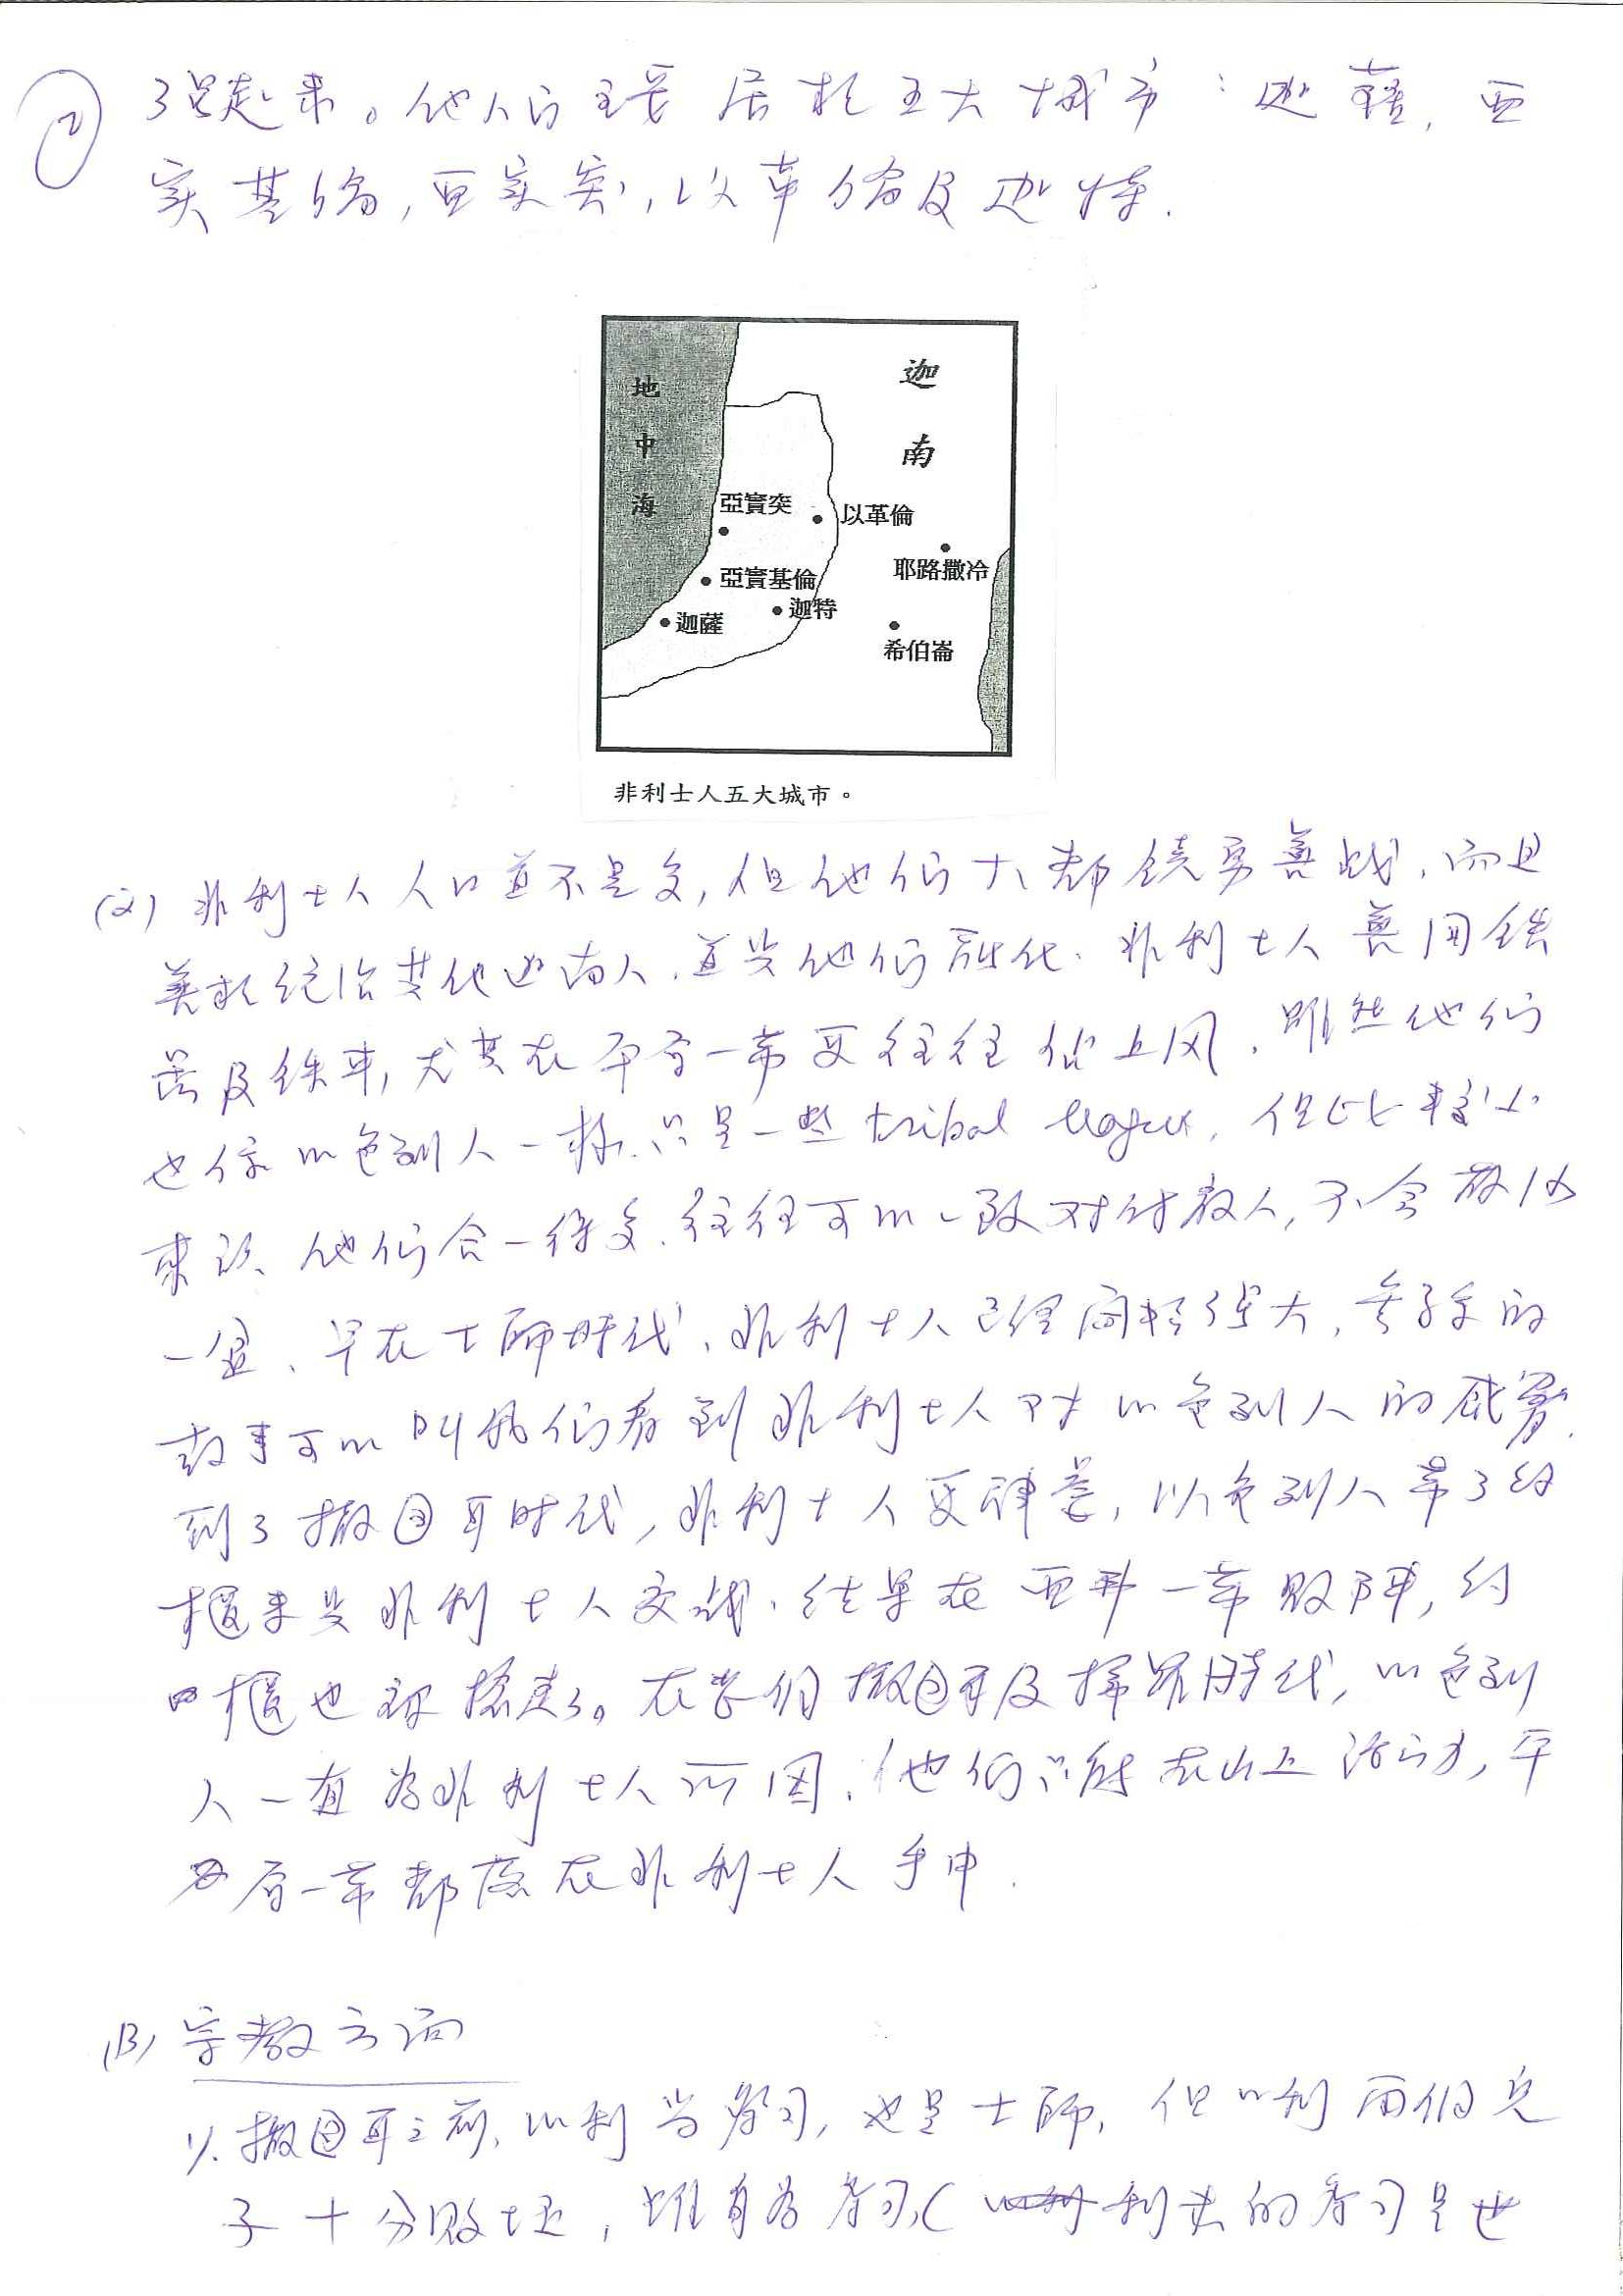 ②
强起来。他们主要居於五大城市：迦薩，亚
实基倫，亚实突，以革倫及迦特.
地中海
迦南
亞實突
以革倫
耶路撒冷
亞實基倫
迦特
迦薩
希伯崙
非利士人五大城市。
(2) 非利士人人口並不是多，但他们大都饒勇善战，而且
善於统治其他迦南人，並与他们同化. 非利士人善用铁
器及铁車，尤其在平原一带更往往佔上风. 雖然他们
也像以色列人一樣, 只是一些 tribal league, 但比較
来说, 他们合一得多, 往往可以一致对付敌人, 不会散沙
一盘. 早在士师时代, 非利士人已经相當强大, 参孫的
故事可以叫我们看到非利士人对以色列人的威脅.
到了撒母耳时代, 非利士人更神荖, 以色列人带了约
櫃来与非利士人交战, 结果在亚弗一带败阵, 约
櫃也被擄走了。在当们撒母耳及掃羅时代, 以色列
人一直为非利士人所困, 他们只能在山上活动, 平
原一带都落在非利士人手中.
(B) 宗教方面
1/. 撒母耳之前, 以利当祭司, 也是士师, 但以利两个兒
子十分败坏, 雖身为祭司, ( 利未的祭司是世